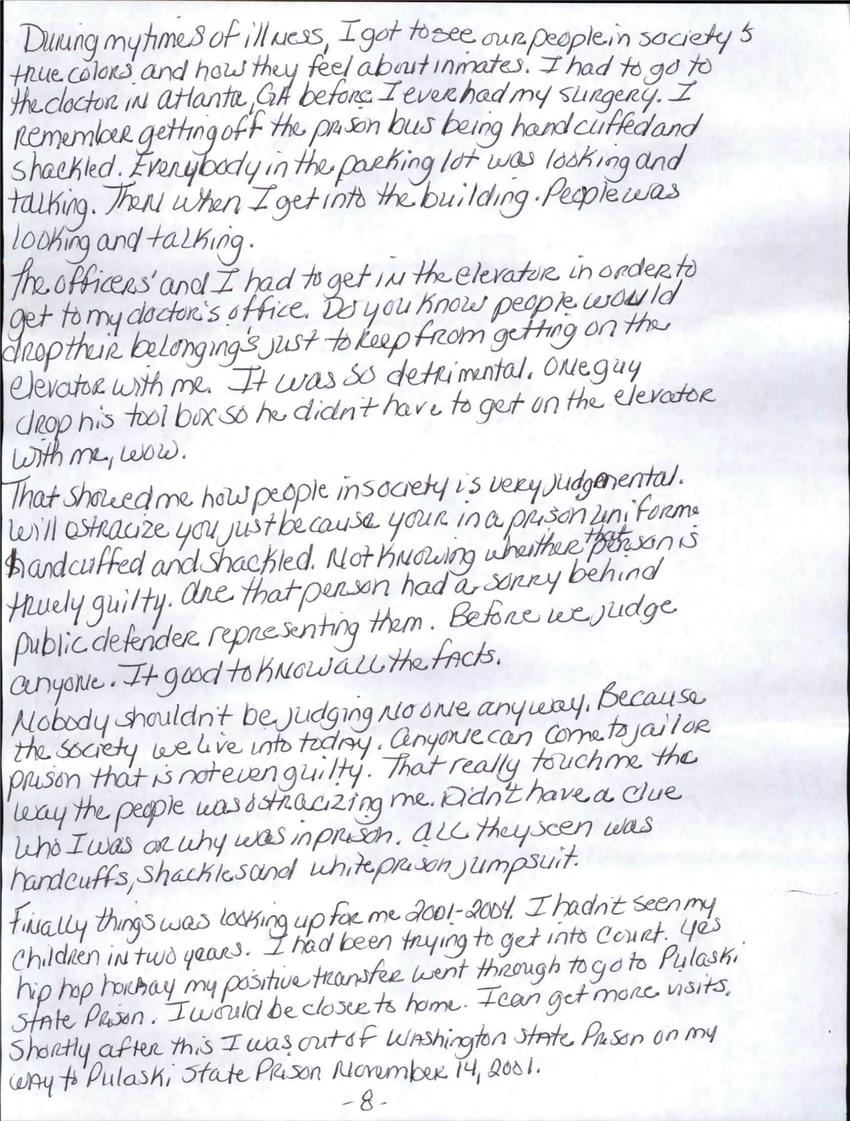 During my times of illness, I got to see our people in society's
true colors and how they feel about inmates. I had to go to
the doctor in Atlanta, GA before I ever had my surgery. I
remember getting off the prison bus being handcuffed and
shackled. Everybody in the parking lot was looking and
talking. Then when I get into the building. People was
looking and talking.
The officers' and I had to get in the elevator in order to
get to my doctor's office. Do you know people would
drop their belonging's just to keep from getting on the
elevator with me. It was so detrimental. One guy
drop his tool box so he didn't have to get on the elevator
with me, wow.
That showed me how people in society is very judgemental.
Will ostracize you just because your in a prison uniforme
handcuffed and shackled. Not knowing wheither that person is
truely guilty. Are that person had a sorry behind
public defender representing them. Before we judge
anyone. It good to know all the facts.
Nobody shouldn't be judging no one anyway. Because
the society we live into today. Anyone can come to jail or
prison that is not even guilty. That really touch me the
way the people was ostracizing me. Didn't have a clue
who I was or why was in prison. All they seen was
handcuffs, shackles and white prison jumpsuit.
Finally things was looking up for me 2001-2004. I hadn't seen my
children in two years. I had been trying to get into court. Yes
hip hop hooray my positive transfer went through to go to Pulaski
State Prison. I would be closer to home. I can get more visits.
Shortly after this I was out of Washington State Prison on my
way to Pulaski State Prison November 14, 2001.
-8-